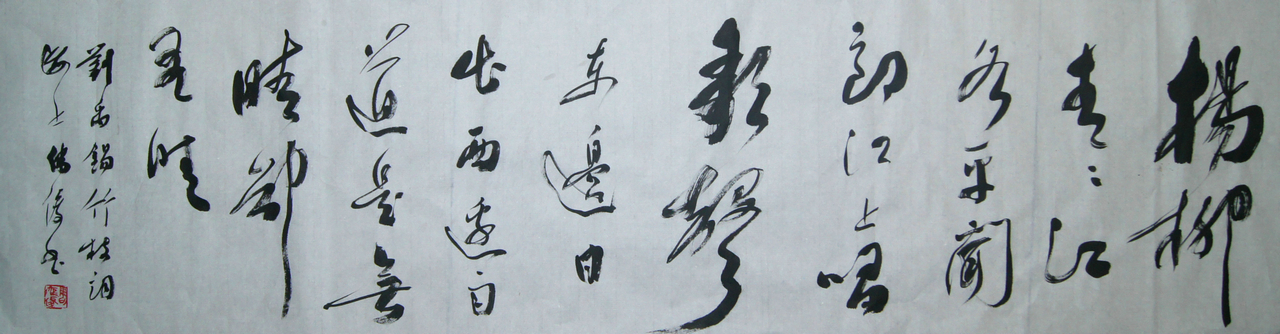 楊柳
青〻江
水平聞
郎江上唱
歌聲
東邊日
出西邊雨
道是無
晴卻
有晴
劉禹錫竹枝詞
海上書